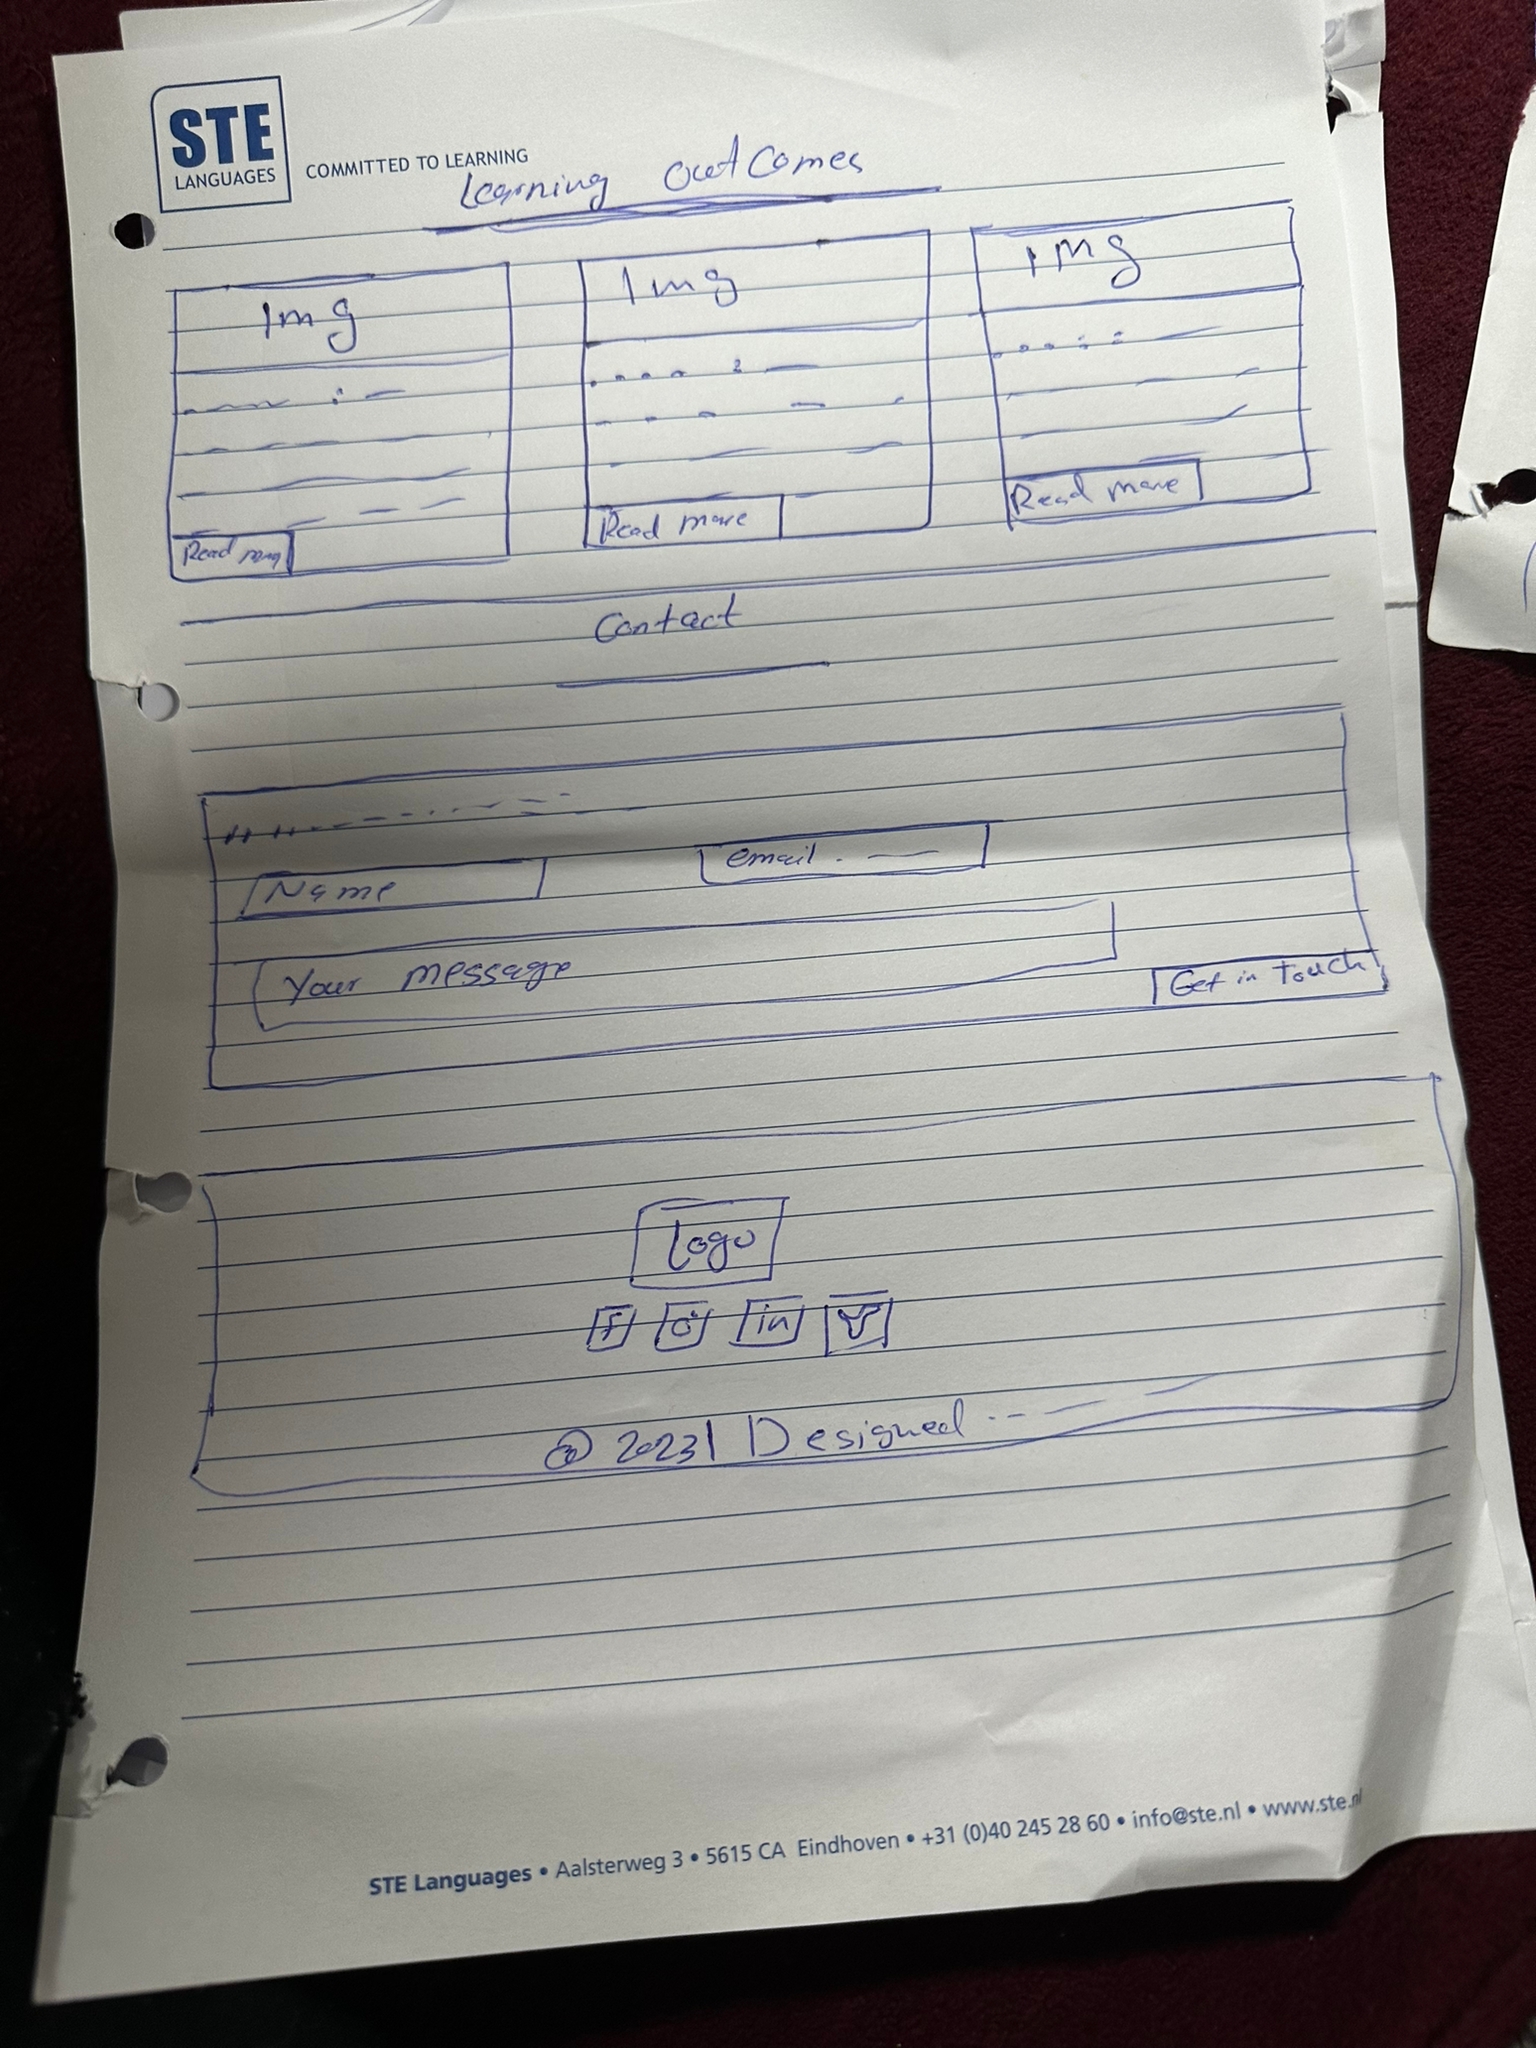 STE
LANGUAGES
COMMITTED TO LEARNING
Learning outcomes
Img
Img
Img
Read more
Read more
Read
Contact
Name
email
Your message
Get in touch
Logo
f
in
© 2023 | Designed
STE Languages • Aalsterweg 3 • 5615 CA Eindhoven • +31 (0)40 245 28 60 • info@ste.nl • www.ste.nl